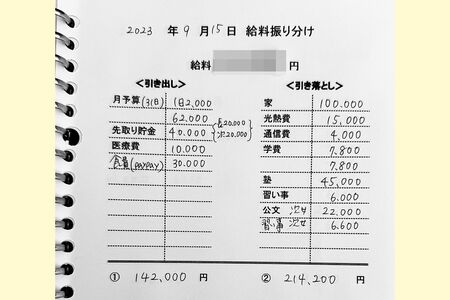 2023 年 9 月 15 日 給料振り分け
給料 円
<引き出し>
月予算(31日) 1日2,000
62,000
先取り貯金 40.000 長20.000 次20.000
医療費 10,000
食費(PayPay) 30.000
① 142,000 円
<引き落とし>
家 100.000
光熱費 15,000
通信費 4,000
学費 7.800
7.800
塾 45,000
習い事 6.000
公文 次女 22,000
習い事 次女 6.600
② 214,200 円